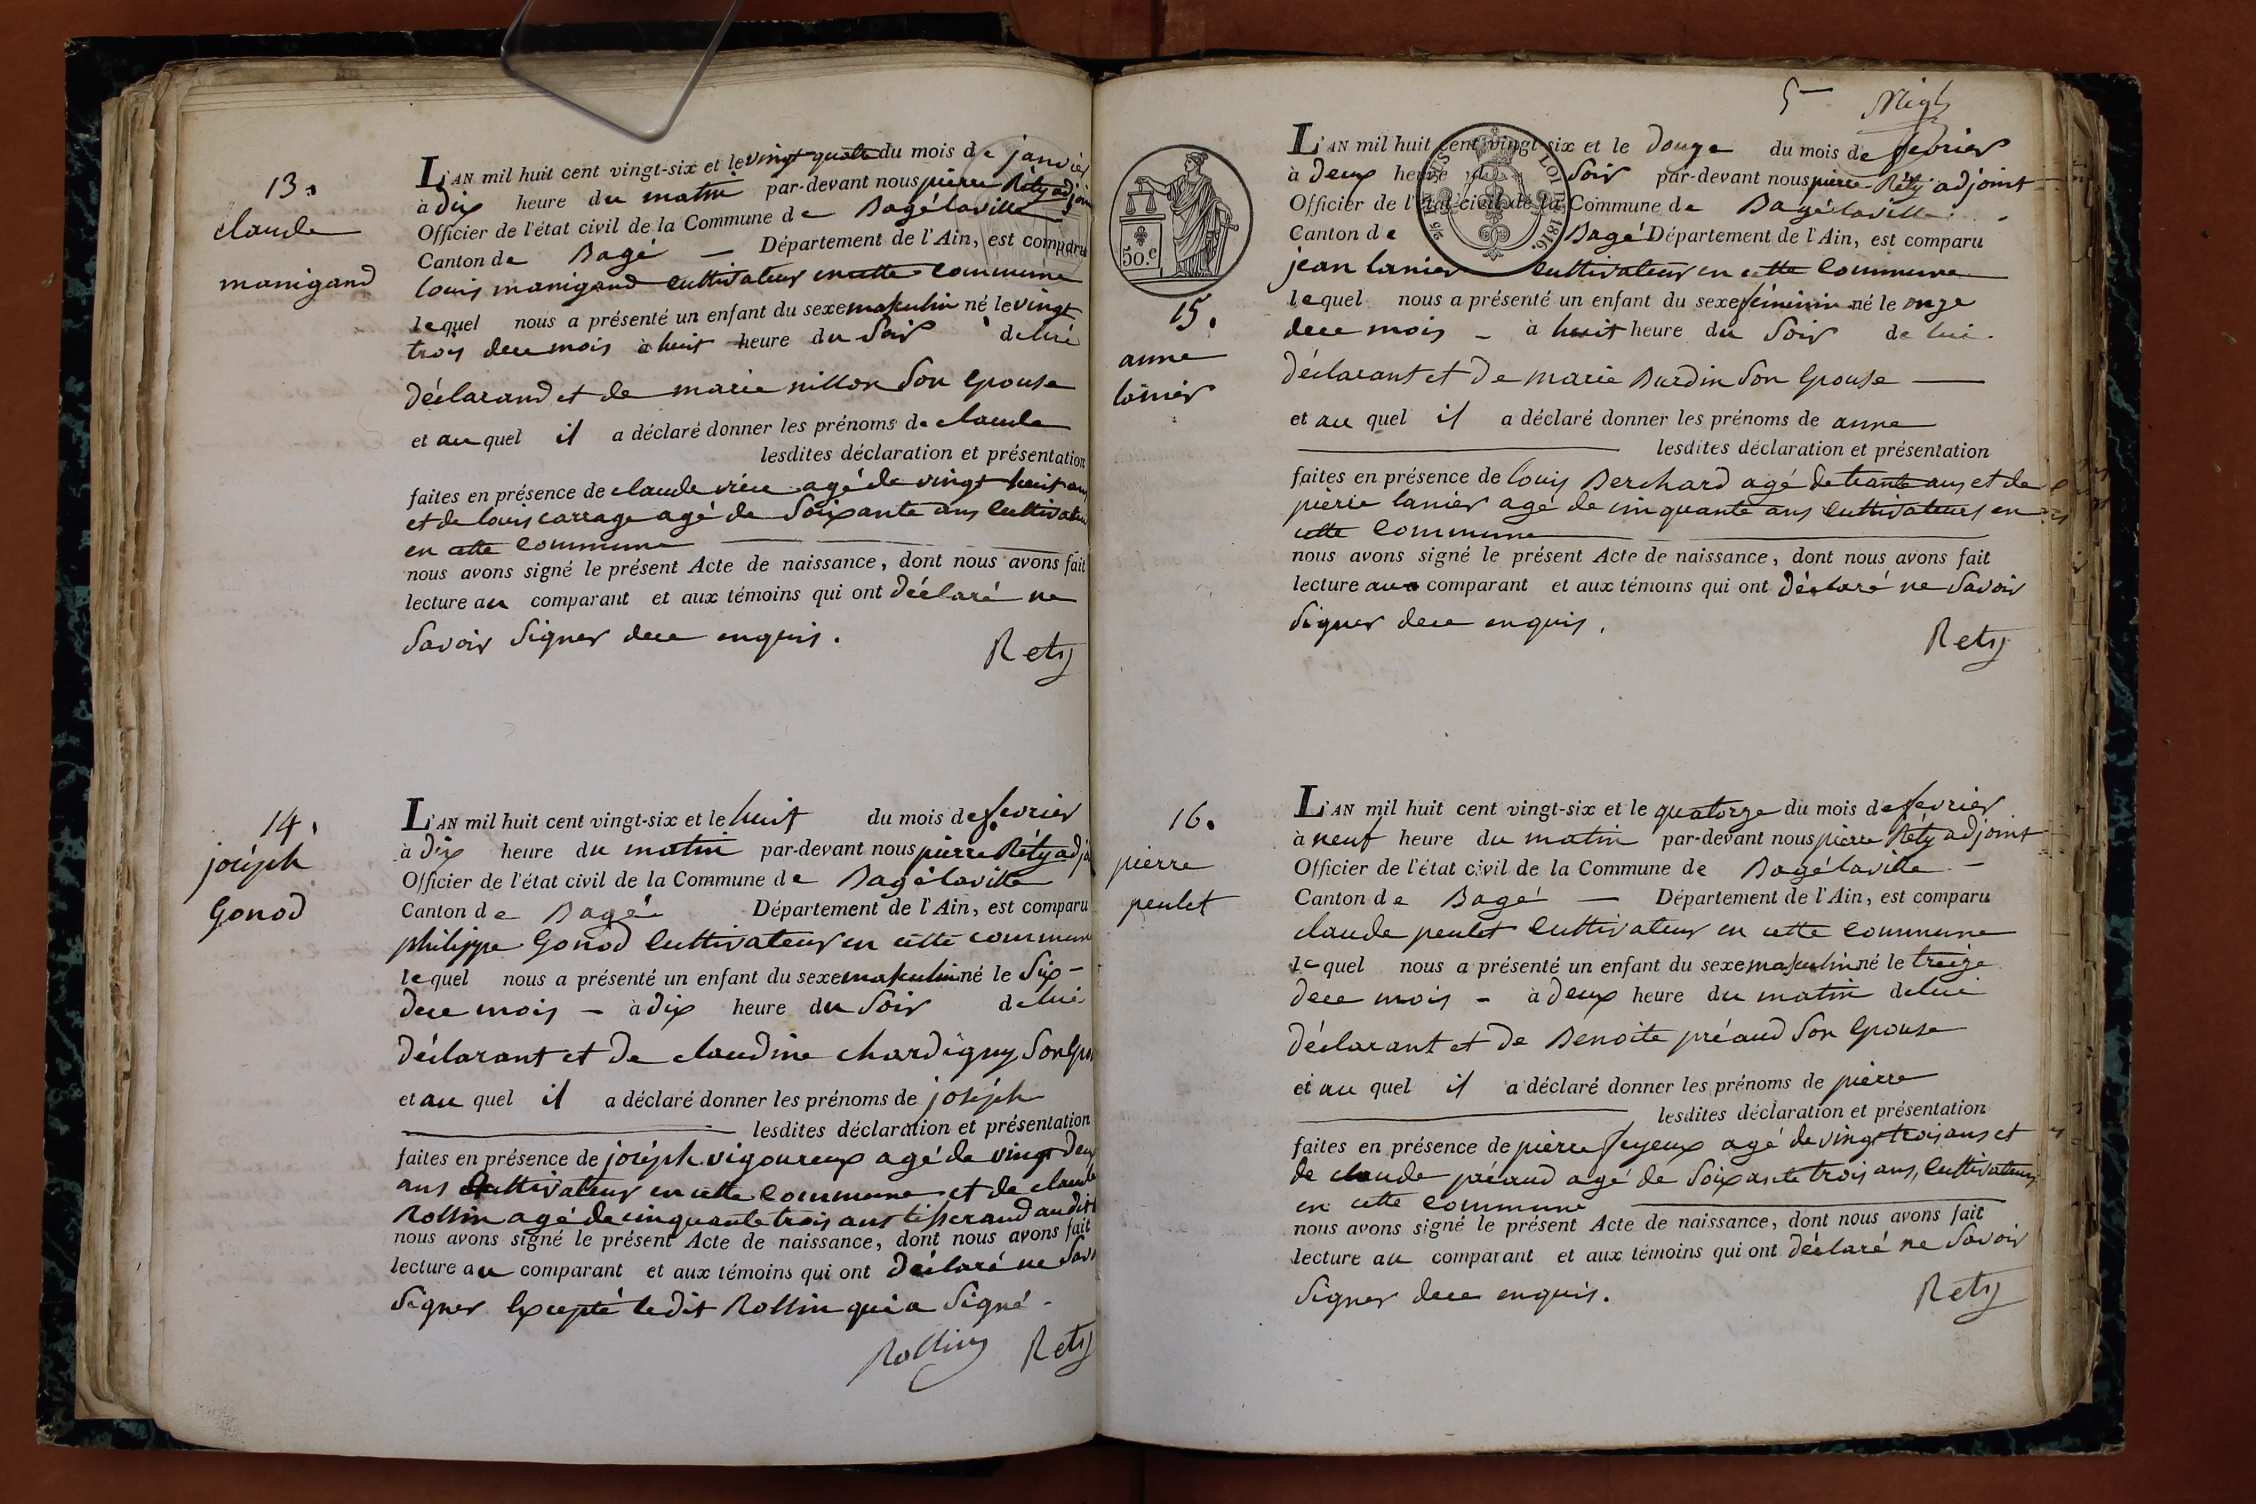 13.
claude
manigand
L'AN mil huit cent vingt-six et le vingt quatre du mois de janvier
à dix heure du matin par-devant nous pierre Réty adjoin
Officier de l'état civil de la Commune de Bagélaville
Canton de Bagé — Département de l'Ain, est comparu
louis manigand cultivateur en cette commune
lequel nous a présenté un enfant du sexe masculin né le vingt
trois dece mois à huit heure du Soir de lui
déclarand et de marie nillon Son Epouse
et au quel il a déclaré donner les prénoms de claude
lesdites déclaration et présentation
faites en présence de claude agé de vingt huit ans
et de louis carrage agé de Soixante ans Cultivateur
en cette Commune
nous avons signé le présent Acte de naissance, dont nous avons fait
lecture au comparant et aux témoins qui ont déclaré ne
Savoir Signer dece enquis.
Rety
14.
joséph
Gonod
L'AN mil huit cent vingt-six et le huit du mois de fevrier
à dix heure du matin par-devant nous pierre Réty adjo
Officier de l'état civil de la Commune de Bagélaville
Canton de Bagé Département de l'Ain, est comparu
philippe Gonod Cultivateur en cette commune
lequel nous a présenté un enfant du sexe masculin né le Six -
dece mois — à dix heure du Soir de lui
déclarant et de claudine chardigny Son Epou
et au quel il a déclaré donner les prénoms de joséph
lesdites déclaration et présentation
faites en présence de joséph vigoureux agé de vingt deux
ans Cultivateur en cette Commune et de claude
Rollin agé de cinquante trois ans tisserand audit
nous avons signé le présent Acte de naissance, dont nous avons fait
lecture au comparant et aux témoins qui ont déclaré ne Savo
Signer Excepté ledit Rollin qui a Signé -
Rollin Rety
5
50.c
LOI DE 1816.
15.
anne
lanier
L'AN mil huit cent vingt-six et le douze du mois de fevrier
à deux heure du Soir par-devant nous pierre Réty adjoint
Officier de l'état civil de la Commune de Bagélaville
Canton de Bagé Département de l'Ain, est comparu
jean lanier Cultivateur en cette Commune
lequel nous a présenté un enfant du sexe féminin né le onze
dece mois - à huit heure du Soir de lui.
déclarant et de marie Burdin Son Epouse —
et au quel il a déclaré donner les prénoms de anne
lesdites déclaration et présentation
faites en présence de louis Berchard agé de trante ans et de
pierre lanier agé de cinquante ans Cultivateurs en
cette Commune
nous avons signé le présent Acte de naissance, dont nous avons fait
lecture au comparant et aux témoins qui ont déclaré ne Savoir
Signer dece enquis.
Rety
16.
pierre
peulet
L'AN mil huit cent vingt-six et le quatorze du mois de fevrier
à neuf heure du matin par-devant nous pierre Réty adjoint
Officier de l'état civil de la Commune de Bagélaville —
Canton de Bagé — Département de l'Ain, est comparu
claude peulet Cultivateur en cette Commune
lequel nous a présenté un enfant du sexe masculin né le treize
dece mois - à deux heure du matin de lui
déclarant et de Benoite préaud Son Epouse
et au quel il a déclaré donner les prénoms de pierre
lesdites déclaration et présentation
faites en présence de pierre feyeux agé de vingt trois ans et
de claude préaud agé de Soixante trois ans, Cultivateurs
en cette Commune
nous avons signé le présent Acte de naissance, dont nous avons fait
lecture au comparant et aux témoins qui ont déclaré ne Savoir
Signer dece enquis.
Rety